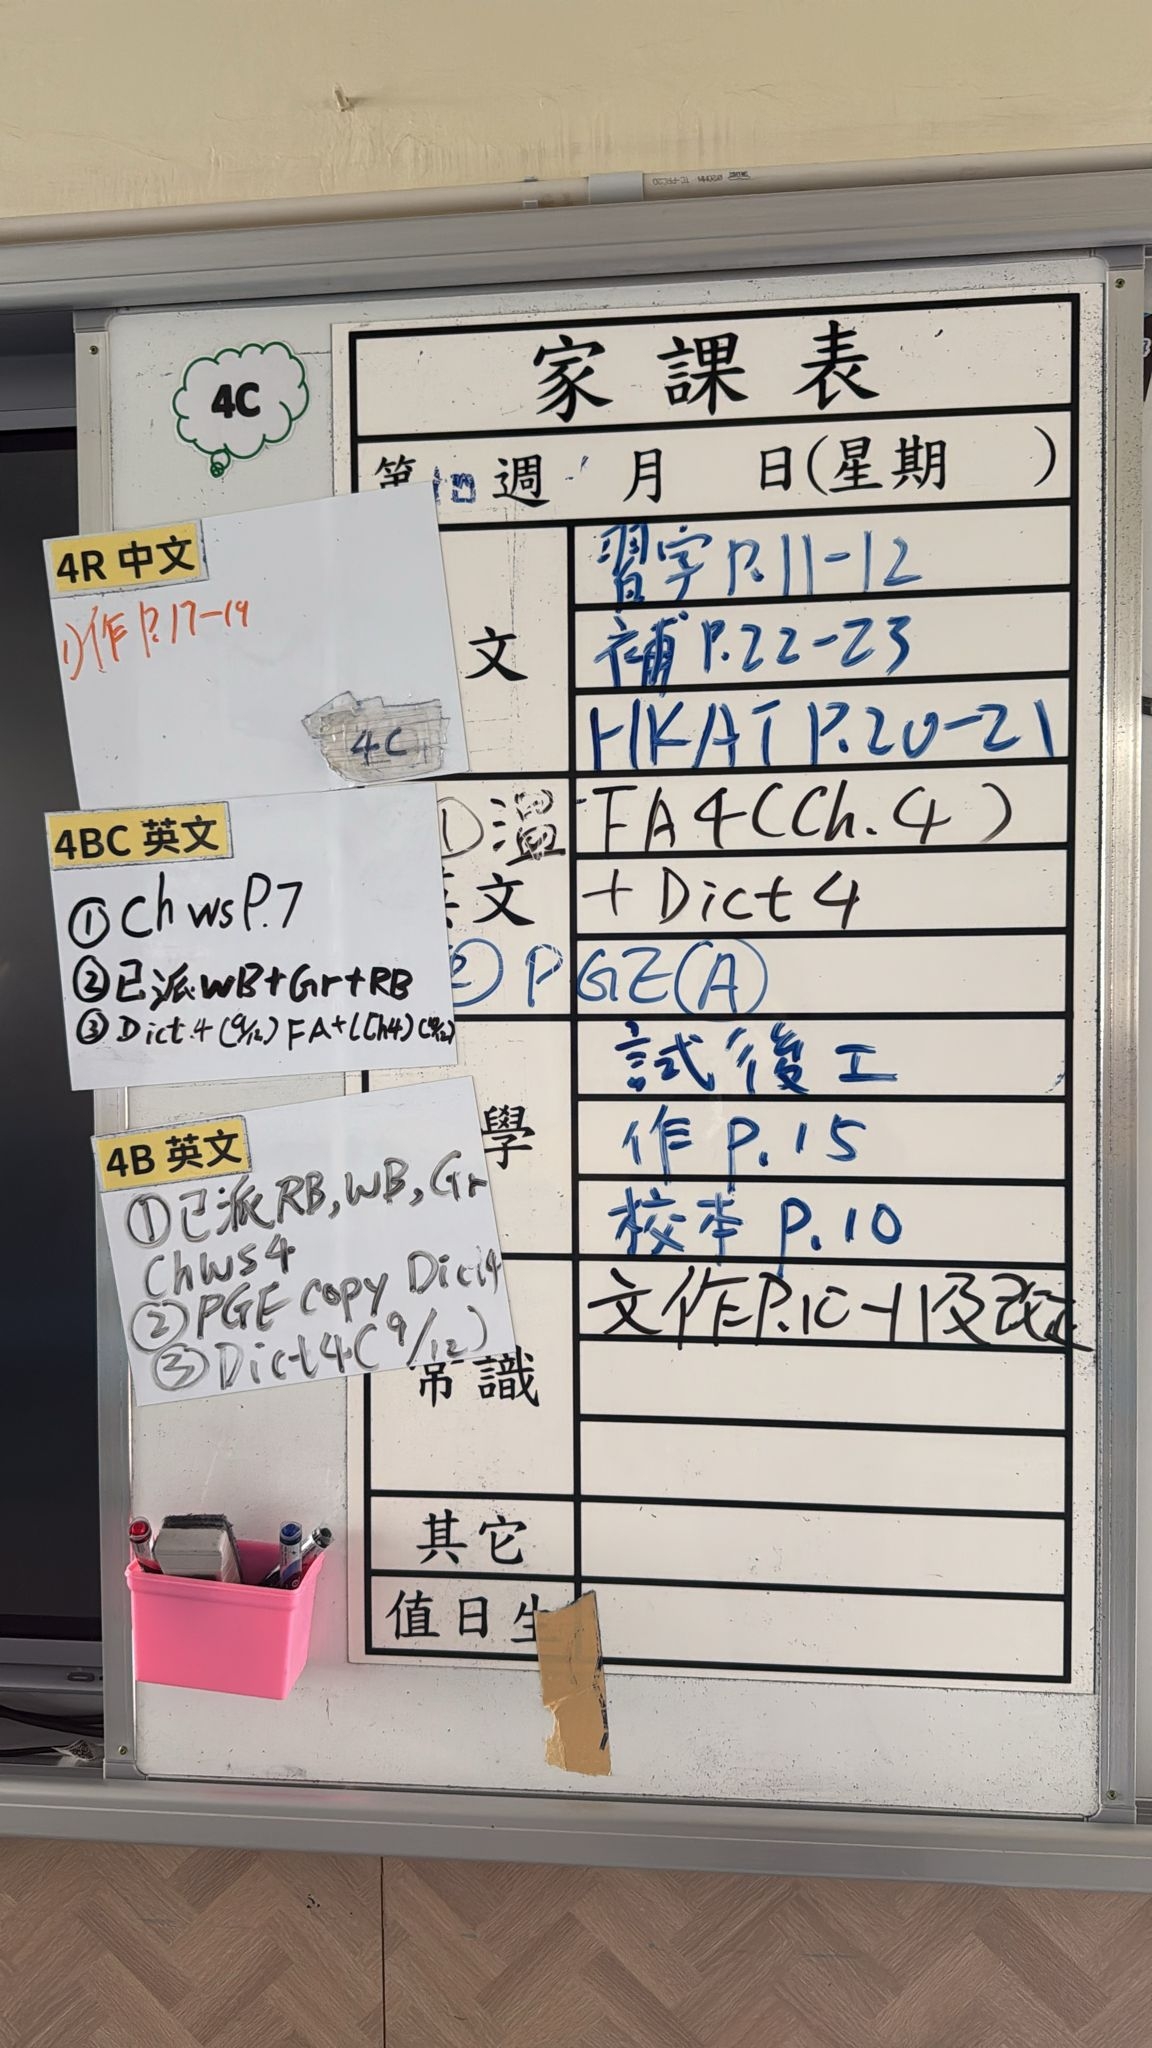 4C
家課表
第十四週 月 日(星期 )
4R 中文
1)作 P.17-19
4C
文
習字 P.11-12
補 P.22-23
HKAT P.20-21
4BC 英文
① Ch ws P.7
② 已派 WB+Gr+RB
③ Dict.4 (9/12) FA4 (Ch4)
① 溫 FA4 (Ch.4)
英文
+ Dict 4
② PGE(A)
4B 英文
① 已派 RB, WB, Gr
Ch ws 4
② PGE copy Dict 4
③ Dict 4 (9/12)
學
試後工
作 P.15
校本 P.10
常識
文作 P.10-11及改正
其它
值日生